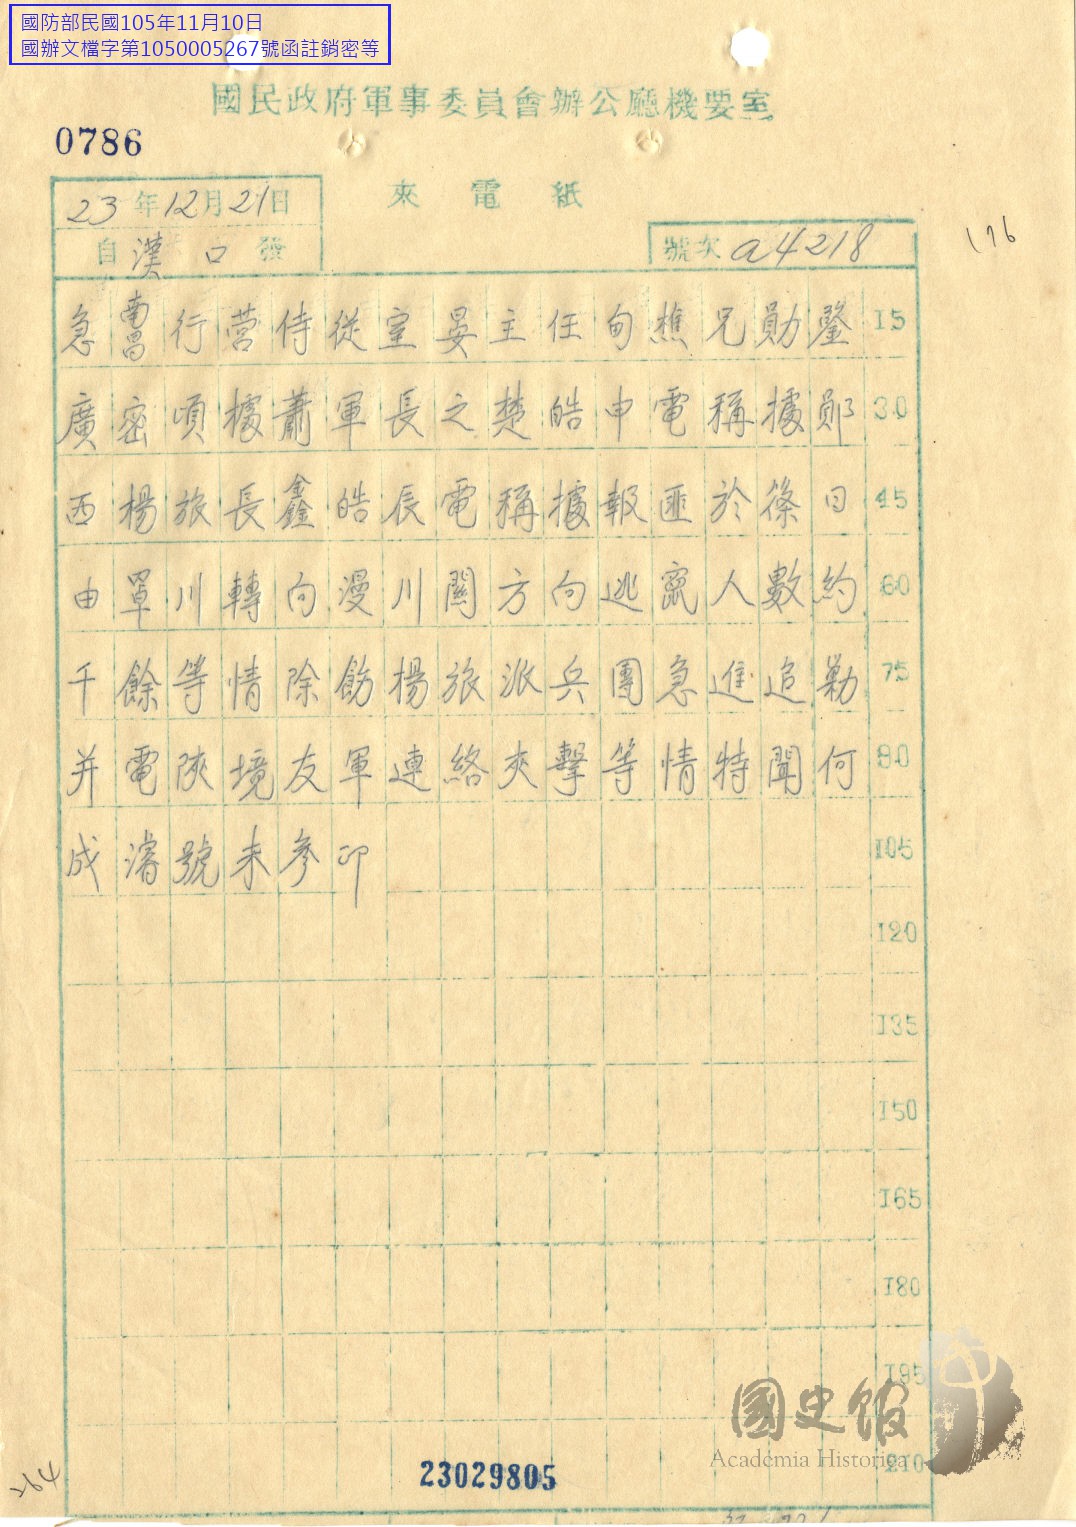 國防部民國105年11月10日
國辦文檔字第1050005267號函註銷密等
國民政府軍事委員會辦公廳機要室
0786
來電紙
23年12月21日
自漢口發
號次 a4218
176
急南昌行营侍從室晏主任甸樵兄勛鑒 15
廣密頃據蕭軍長之楚皓申電稱據鄖 30
西楊旅長鑫皓辰電稱據報匪於篠日 45
由罩川轉向漫川關方向逃竄人數約 60
千餘等情除飭楊旅派兵團急進追勦 75
并電陝境友軍連絡夾擊等情特聞何 90
成濬號未參印 105
120
135
150
165
180
195
210
國史館
Academia Historica
264
23029805